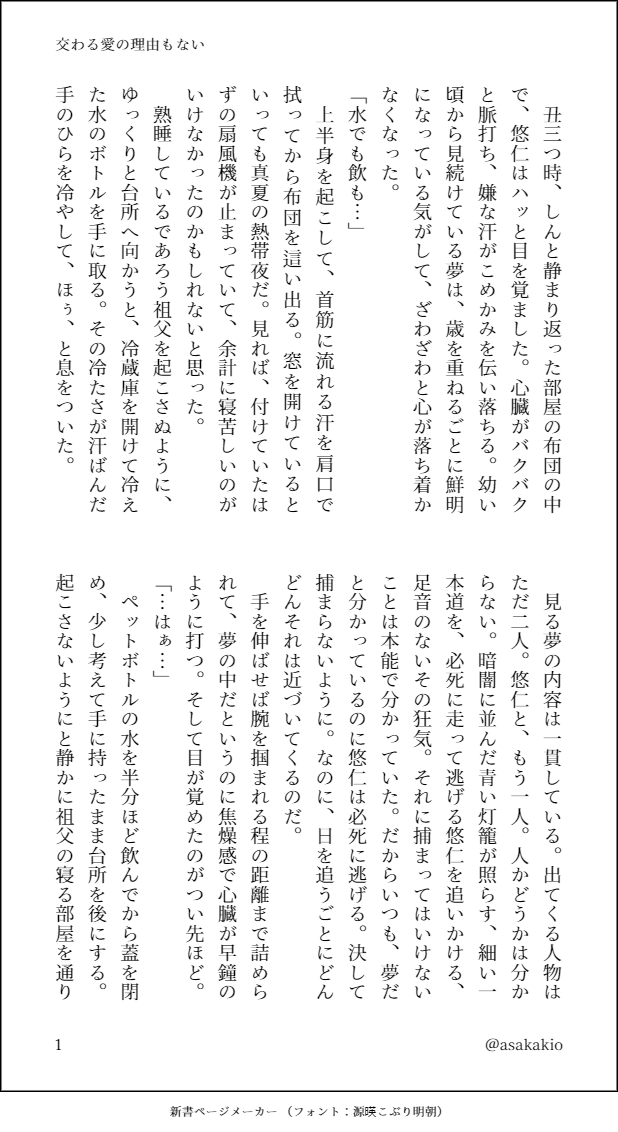 交わる愛の理由もない
　丑三つ時、しんと静まり返った部屋の布団の中
で、悠仁はハッと目を覚ました。心臓がバクバク
と脈打ち、嫌な汗がこめかみを伝い落ちる。幼い
頃から見続けている夢は、歳を重ねるごとに鮮明
になっている気がして、ざわざわと心が落ち着か
なくなった。
「水でも飲も…」
　上半身を起こして、首筋に流れる汗を肩口で
拭ってから布団を這い出る。窓を開けていると
いっても真夏の熱帯夜だ。見れば、付けていたは
ずの扇風機が止まっていて、余計に寝苦しいのが
いけなかったのかもしれないと思った。
　熟睡しているであろう祖父を起こさぬように、
ゆっくりと台所へ向かうと、冷蔵庫を開けて冷え
た水のボトルを手に取る。その冷たさが汗ばんだ
手のひらを冷やして、ほぅ、と息をついた。
　見る夢の内容は一貫している。出てくる人物は
ただ二人。悠仁と、もう一人。人かどうかは分か
らない。暗闇に並んだ青い灯籠が照らす、細い一
本道を、必死に走って逃げる悠仁を追いかける、
足音のないその狂気。それに捕まってはいけない
ことは本能で分かっていた。だからいつも、夢だ
と分かっているのに悠仁は必死に逃げる。決して
捕まらないように。なのに、日を追うごとにどん
どんそれは近づいてくるのだ。
　手を伸ばせば腕を掴まれる程の距離まで詰めら
れて、夢の中だというのに焦燥感で心臓が早鐘の
ように打つ。そして目が覚めたのがつい先ほど。
「…はぁ…」
　ペットボトルの水を半分ほど飲んでから蓋を閉
め、少し考えて手に持ったまま台所を後にする。
起こさないようにと静かに祖父の寝る部屋を通り
1
@asakakio
新書ページメーカー（フォント：源暎こぶり明朝）